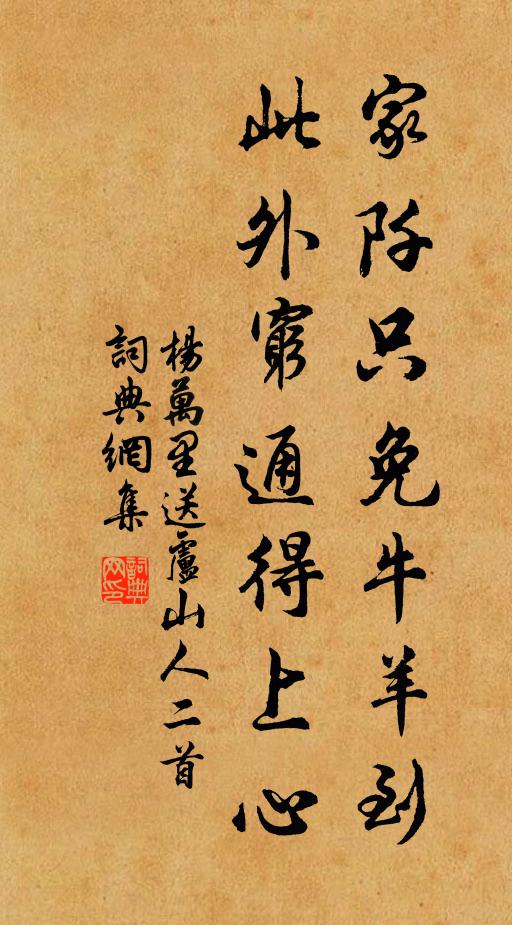 家阡只免牛羊到
此外窮通得上心
楊萬里送盧山人二首
詞典網集
詞典
网印